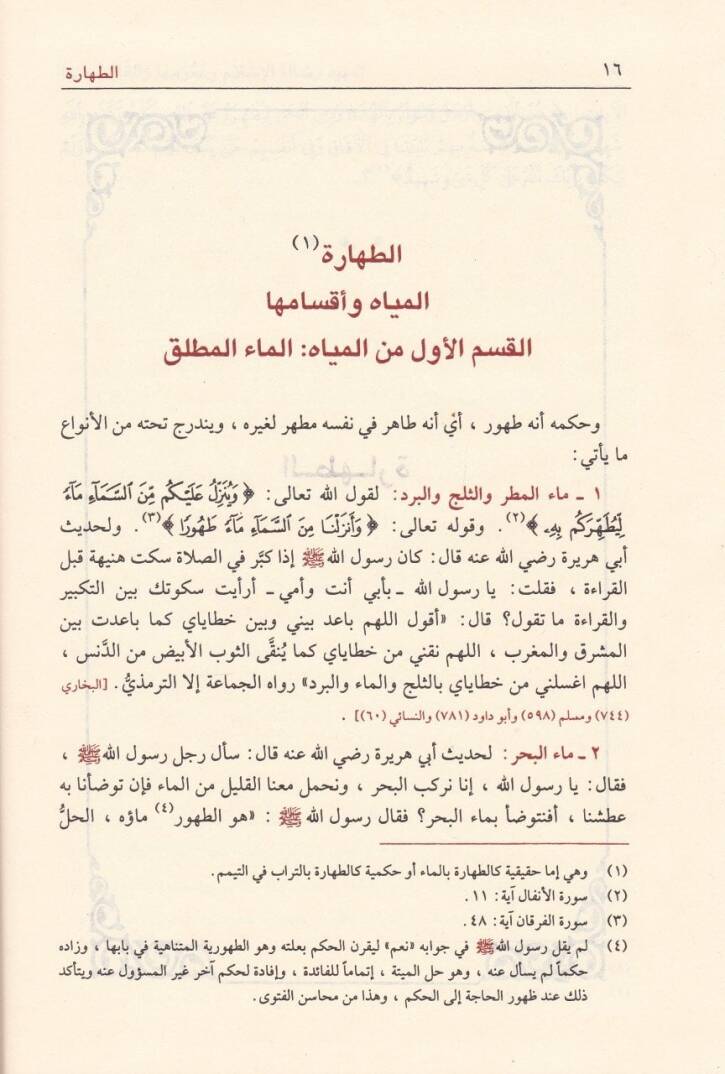 ١٦ الطهارة
الطهارة(١)
المياه وأقسامها
القسم الأول من المياه: الماء المطلق
وحكمه أنه طهور ، أيْ أنه طاهر في نفسه مطهر لغيره ، ويندرج تحته من الأنواع
ما يأتي:
١ ـ ماء المطر والثلج والبرد: لقول الله تعالى: ﴿ وَيُنَزِّلُ عَلَيْكُم مِّنَ ٱلسَّمَآءِ مَآءً
لِّيُطَهِّرَكُم بِهِۦ ﴾(٢). وقوله تعالى: ﴿ وَأَنزَلْنَا مِنَ ٱلسَّمَآءِ مَآءً طَهُورًا ﴾(٣). ولحديث
أبي هريرة رضي الله عنه قال: كان رسول الله ﷺ إذا كبَّر في الصلاة سكت هنيهة قبل
القراءة ، فقلت: يا رسول الله ـ بأبي أنت وأمي ـ أرأيت سكوتك بين التكبير
والقراءة ما تقول؟ قال: «أقول اللهم باعد بيني وبين خطاياي كما باعدت بين
المشرق والمغرب ، اللهم نقني من خطاياي كما يُنقَّى الثوب الأبيض من الدَّنس ،
اللهم اغسلني من خطاياي بالثلج والماء والبرد» رواه الجماعة إلا الترمذيُّ. [البخاري
(٧٤٤) ومسلم (٥٩٨) وأبو داود (٧٨١) والنسائي (٦٠)] .
٢ ـ ماء البحر: لحديث أبي هريرة رضي الله عنه قال: سأل رجل رسول الله ﷺ ،
فقال: يا رسول الله ، إنا نركب البحر ، ونحمل معنا القليل من الماء فإن توضأنا به
عطشنا ، أفنتوضأ بماء البحر؟ فقال رسول الله ﷺ : «هو الطهور(٤) ماؤه ، الحلُّ
(١) وهي إما حقيقية كالطهارة بالماء أو حكمية كالطهارة بالتراب في التيمم.
(٢) سورة الأنفال آية: ١١ .
(٣) سورة الفرقان آية: ٤٨ .
(٤) لم يقل رسول الله ﷺ في جوابه «نعم» ليقرن الحكم بعلته وهو الطهورية المتناهية في بابها ، وزاده
حكماً لم يسأل عنه ، وهو حل الميتة ، إتماماً للفائدة ، وإفادة لحكم آخر غير المسؤول عنه ويتأكد
ذلك عند ظهور الحاجة إلى الحكم ، وهذا من محاسن الفتوى.